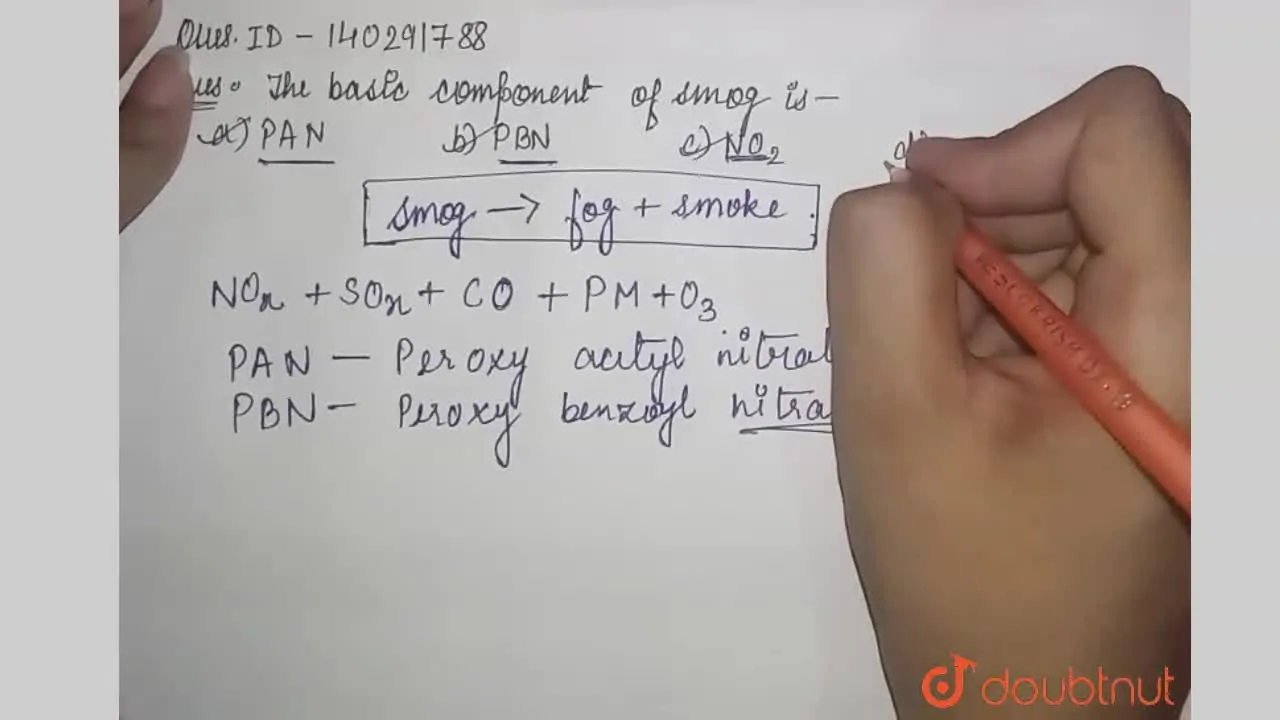 Ques. ID - 140291788
The basic component of smog is -
a) PAN b) PBN c) NO2 d)
smog → fog + smoke
NOx + SOx + CO + PM + O3
PAN - Peroxy acityl
PBN - Peroxy benzoyl
doubtnut